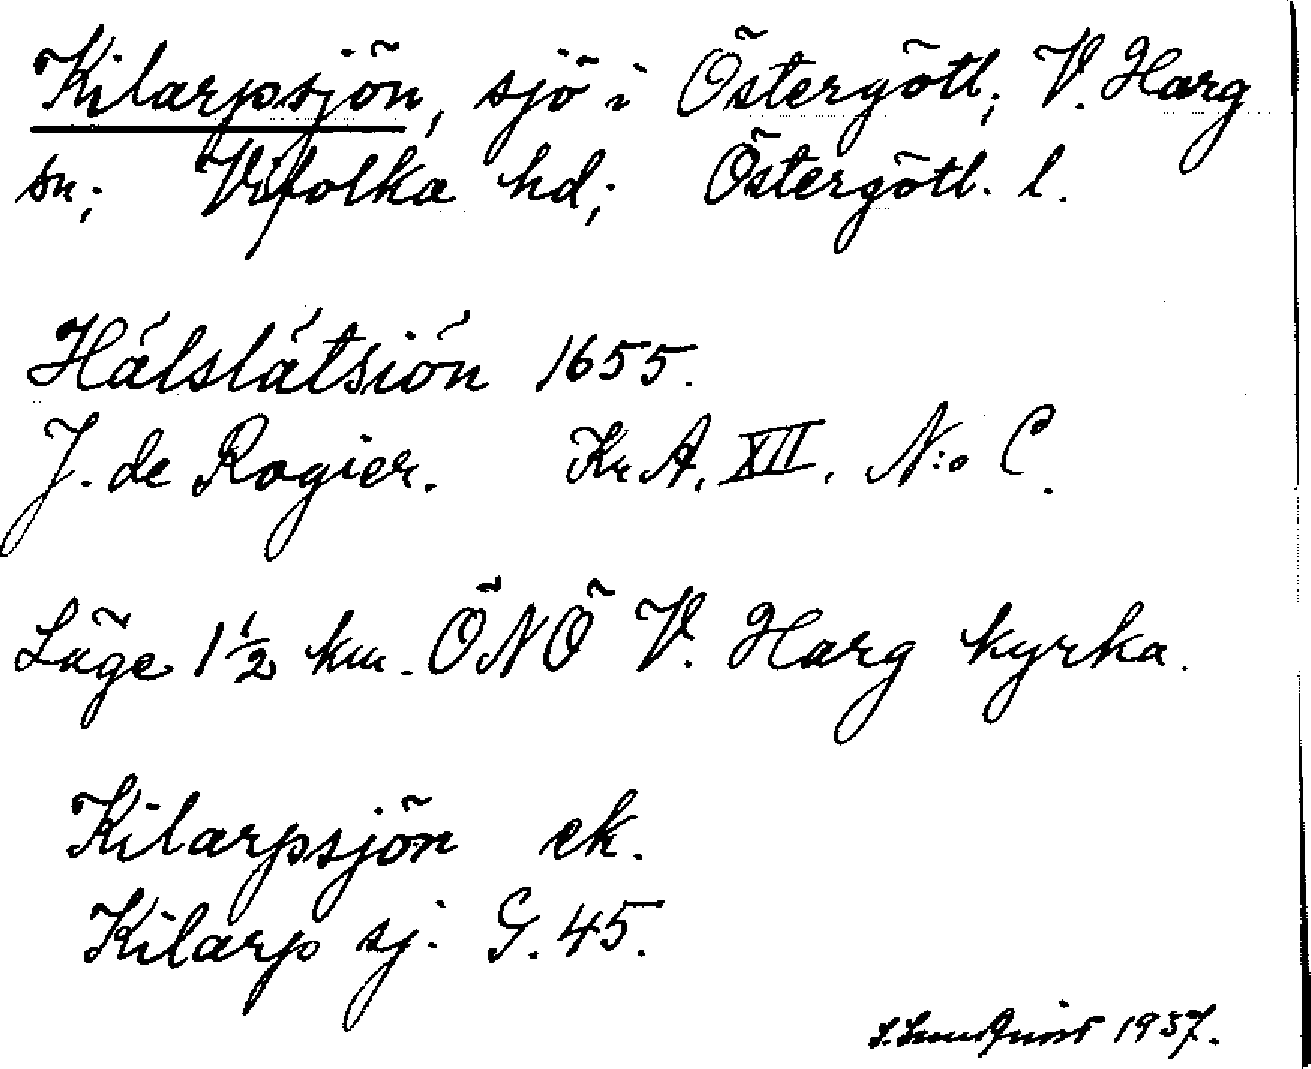 Kilarpsjön, sjö i Östergötl; V. Harg
sn; Vifolka hd; Östergötl. l.
Hálslátsión 1655.
J. de Rogier. Kr A. XII. N:o C.
Läge 1½ km. ÖNÖ V. Harg kyrka.
Kilarpsjön ek.
Kilarp sj. G. 45.
1937.